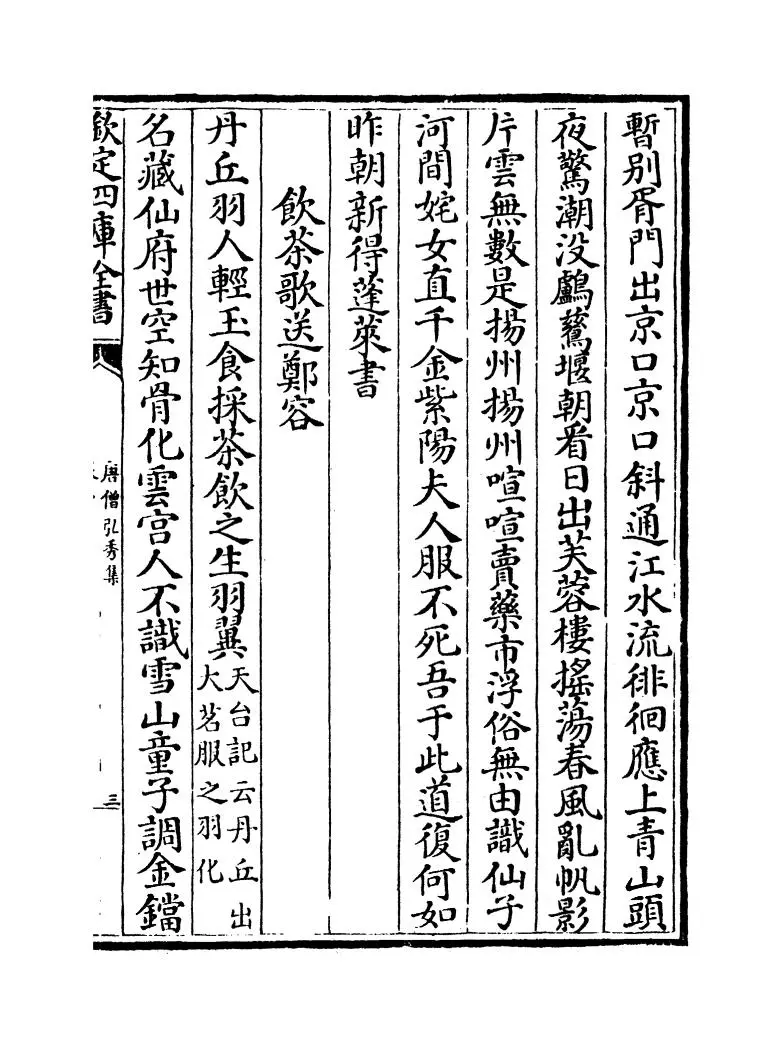 暫别胥門出京口京口斜通江水流徘徊應上青山頭
夜驚潮没鸕鷀堰朝看日出芙蓉樓摇蕩春風亂帆影
片雲無數是揚州揚州喧喧賣藥市浮俗無由識仙子
河間姹女直千金紫陽夫人服不死吾于此道復何如
昨朝新得蓬萊書
飲茶歌送鄭容
丹丘羽人輕玉食採茶飲之生羽翼天台記云丹丘出
大茗服之羽化
名藏仙府世空知骨化雲宫人不識雪山童子調金鐺
欽定四庫全書
唐僧弘秀集
三